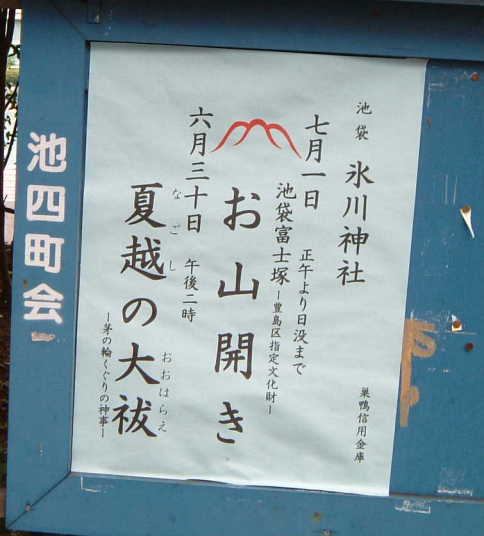 池袋 氷川神社
七月一日 正午より日没まで
池袋富士塚 ー豊島区指定文化財ー
お山開き
六月三十日 午後二時
なごし おおはらえ
夏越の大祓
ー茅の輪くぐりの神事ー
巣鴨信用金庫
池四町会